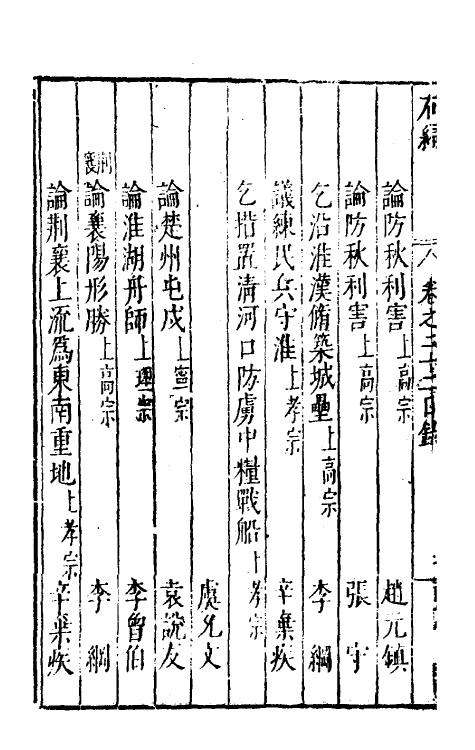 右編 卷之二十二目錄
論防秋利害 上高宗 趙元鎮
論防秋利害 上高宗 張守
乞沿淮漢脩築城壘 上高宗 李綱
議練民兵守淮 上孝宗 辛棄疾
乞措置清河口防虜中糧戰船 上孝宗
虞允文
論楚州屯戍 上寧宗 袁說友
論淮湖舟師 上理宗 李曾伯
荆襄
論襄陽形勝 上高宗 李綱
論荆襄上流爲東南重地 上孝宗 辛棄疾